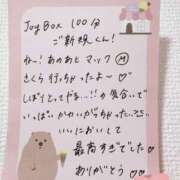 Joy Box 100分
ご新規くん!
ね〜! あかあと マック Ⓜ
さくら 行っちゃったよ〜♡
しぼりとってやる…!! の気合いで
いっぱいかわいがっちゃった…こちら
いいにおいして
最高すぎでした♡
ありがとう♡♡